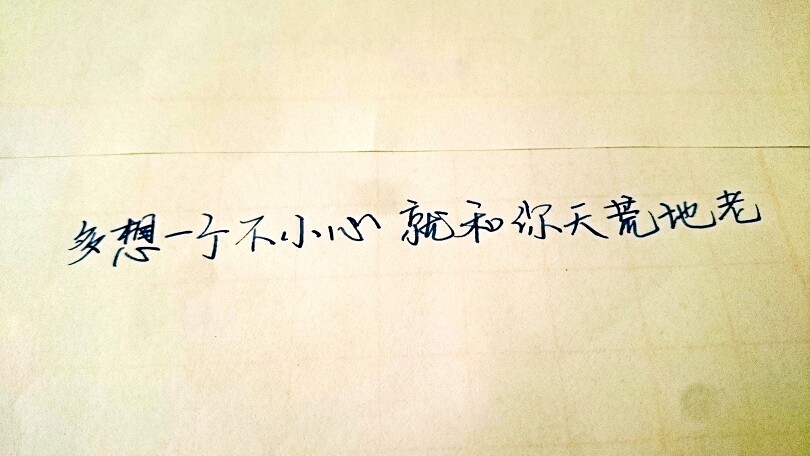 多想一个不小心 就和你天荒地老